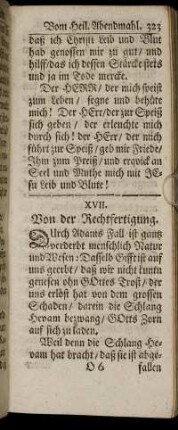 Vom Heil. Abendmahl. 323
daß ich Christi Leib und Blut
hab genossen mir zu gut/ und
hilff/das ich dessen Stärcke stets
und ja im Tode mercke.
Der HERR/ der mich speist
zum Leben/ segne und behüte
mich! Der HErr/der zur Speiß
sich geben/ der erleuchte mich
durch sich! der HErr/ der mich
führt zur Speiß/ geb mir Friede/
Ihm zum Preiß/ und erqvick an
Seel und Muthe mich mit JE-
su Leib und Blute!
XVII.
Von der Rechtfertigung.
DUrch Adams Fall ist gantz
verderbt menschlich Natur
und Wesen: Dasselb Gifft ist auf
uns geerbt/ daß wir nicht kuntn
genesen ohn GOttes Trost/ der
uns erlöst hat von dem grossen
Schaden/ darein die Schlang
Hevam bezwang/ GOtts Zorn
auf sich zu laden.
Weil denn die Schlang He-
vam hat bracht/ daß sie ist abge-
O 6 fallen